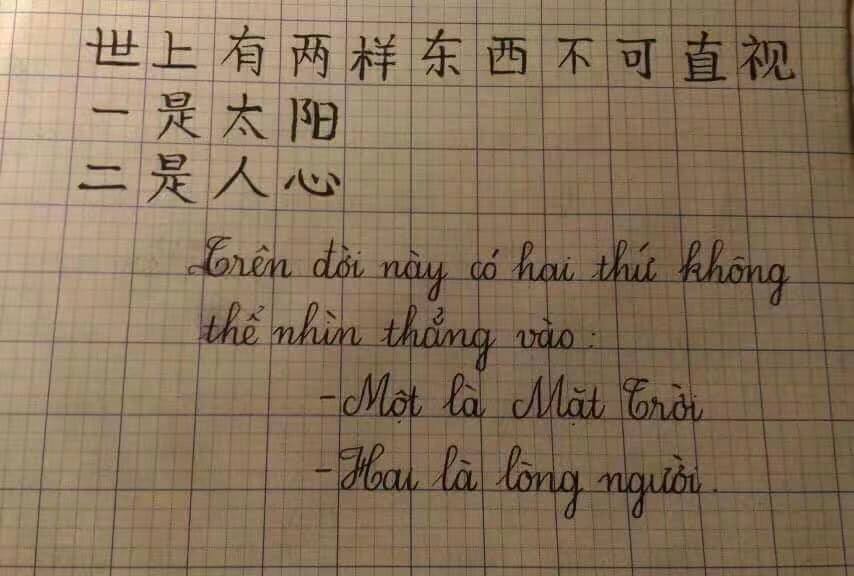 世上有两样东西不可直视
一是太阳
二是人心
Trên đời này có hai thứ không
thể nhìn thẳng vào:
-Một là Mặt Trời
-Hai là lòng người.